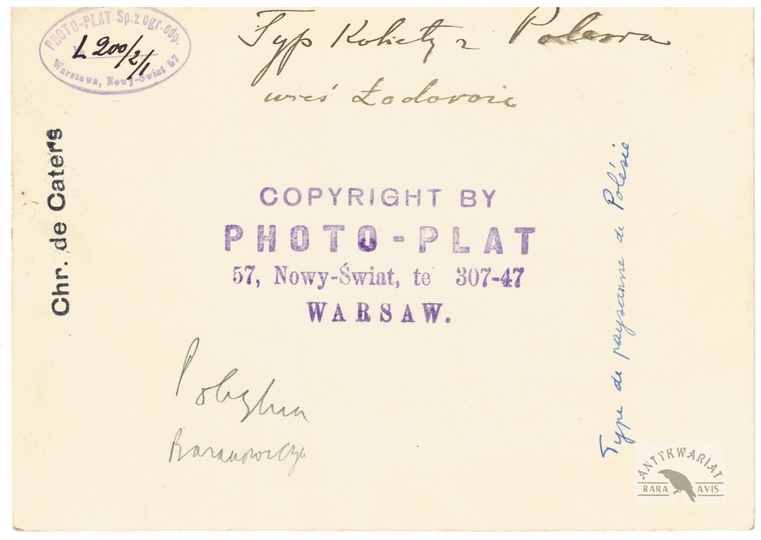 PHOTO-PLAT Sp. z ogr. odp.
L 200/2/1
Warszawa, Nowy-Świat 57
Typ Kobiety z
wieś
Chr. de Caters
COPYRIGHT BY
PHOTO-PLAT
57, Nowy-Świat, te 307-47
WARSAW.
Type de paysanne de Polésie
Baranowicze
ANTYKWARIAT
RARA AVIS